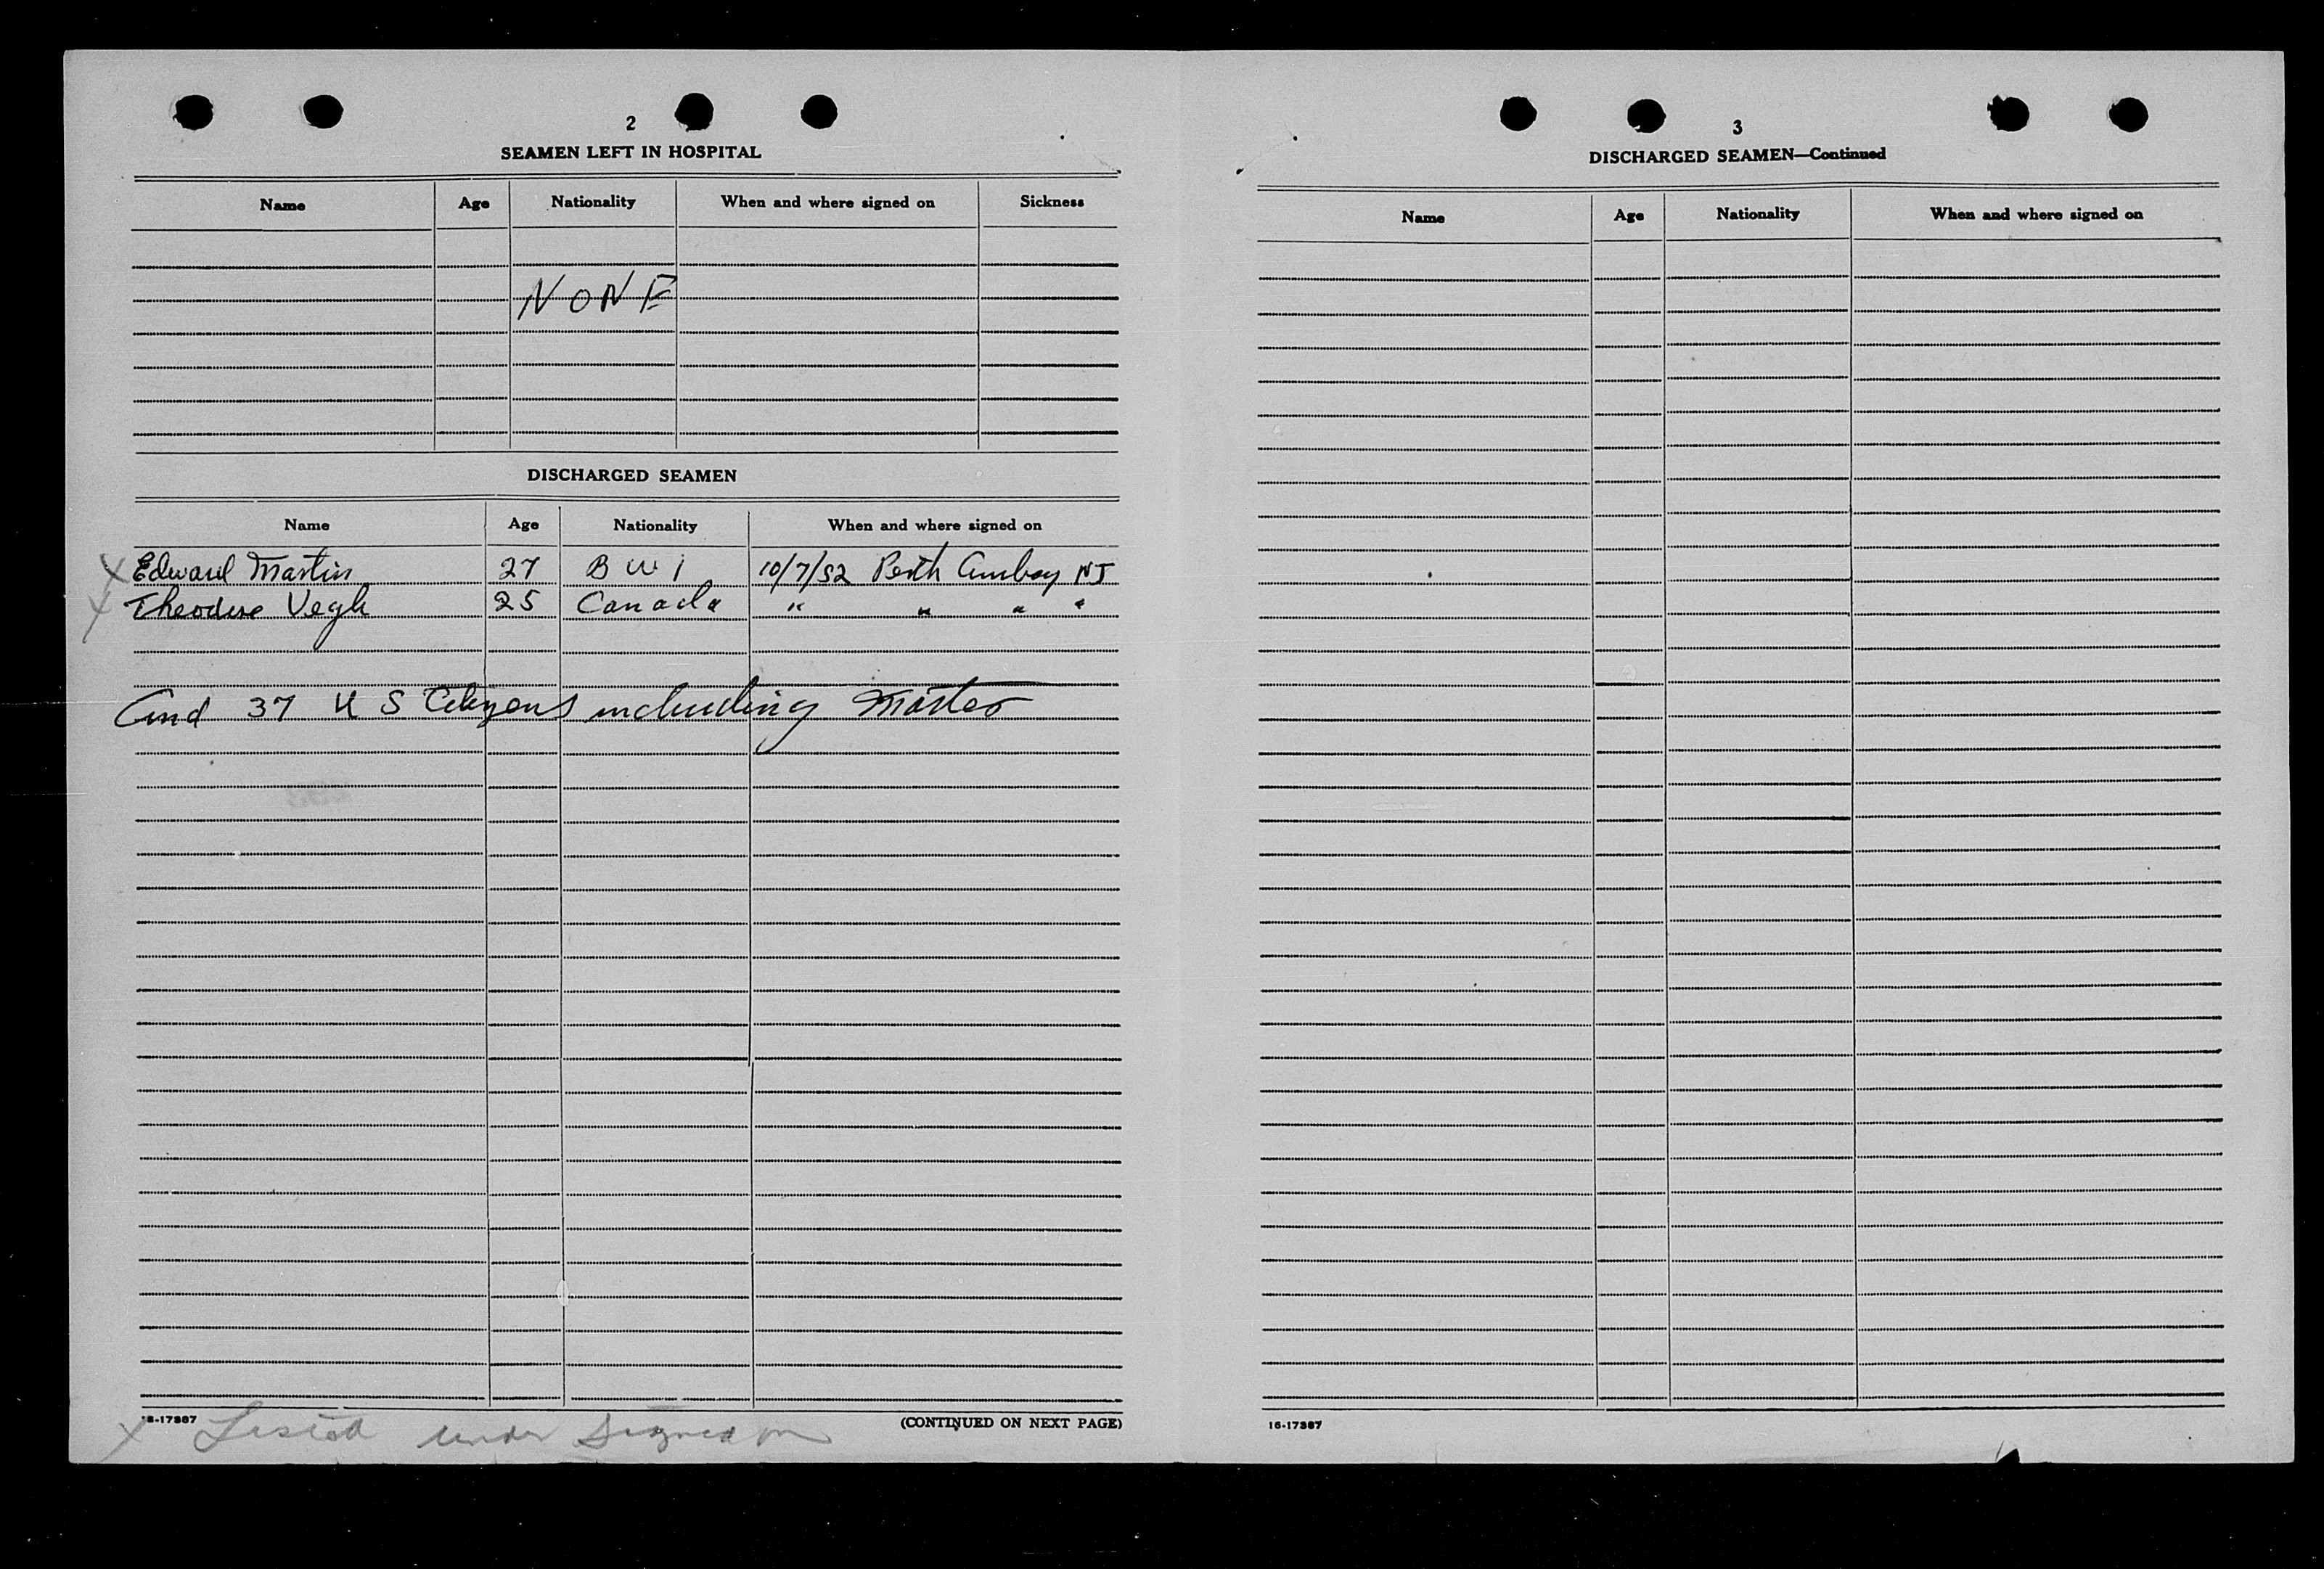 2
SEAMEN LEFT IN HOSPITAL
Name Age Nationality When and where signed on Sickness
NONE
DISCHARGED SEAMEN
Name Age Nationality When and where signed on
X Edward Martin 27 B W I 10/7/52 Perth Amboy NJ
X Theodore Vegh 25 Canada " " " "
And 37 U S Citizens including Master
16-17387
(CONTINUED ON NEXT PAGE)
X Listed under Signed on
3
DISCHARGED SEAMEN—Continued
Name Age Nationality When and where signed on
16-17387